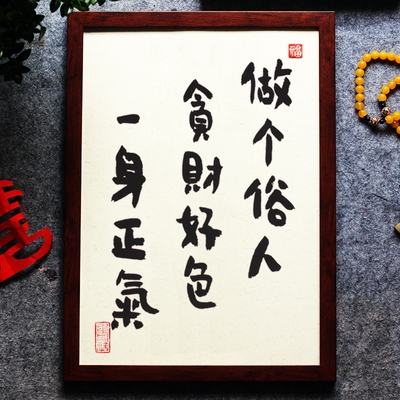 做个俗人
貪財好色
一身正氣